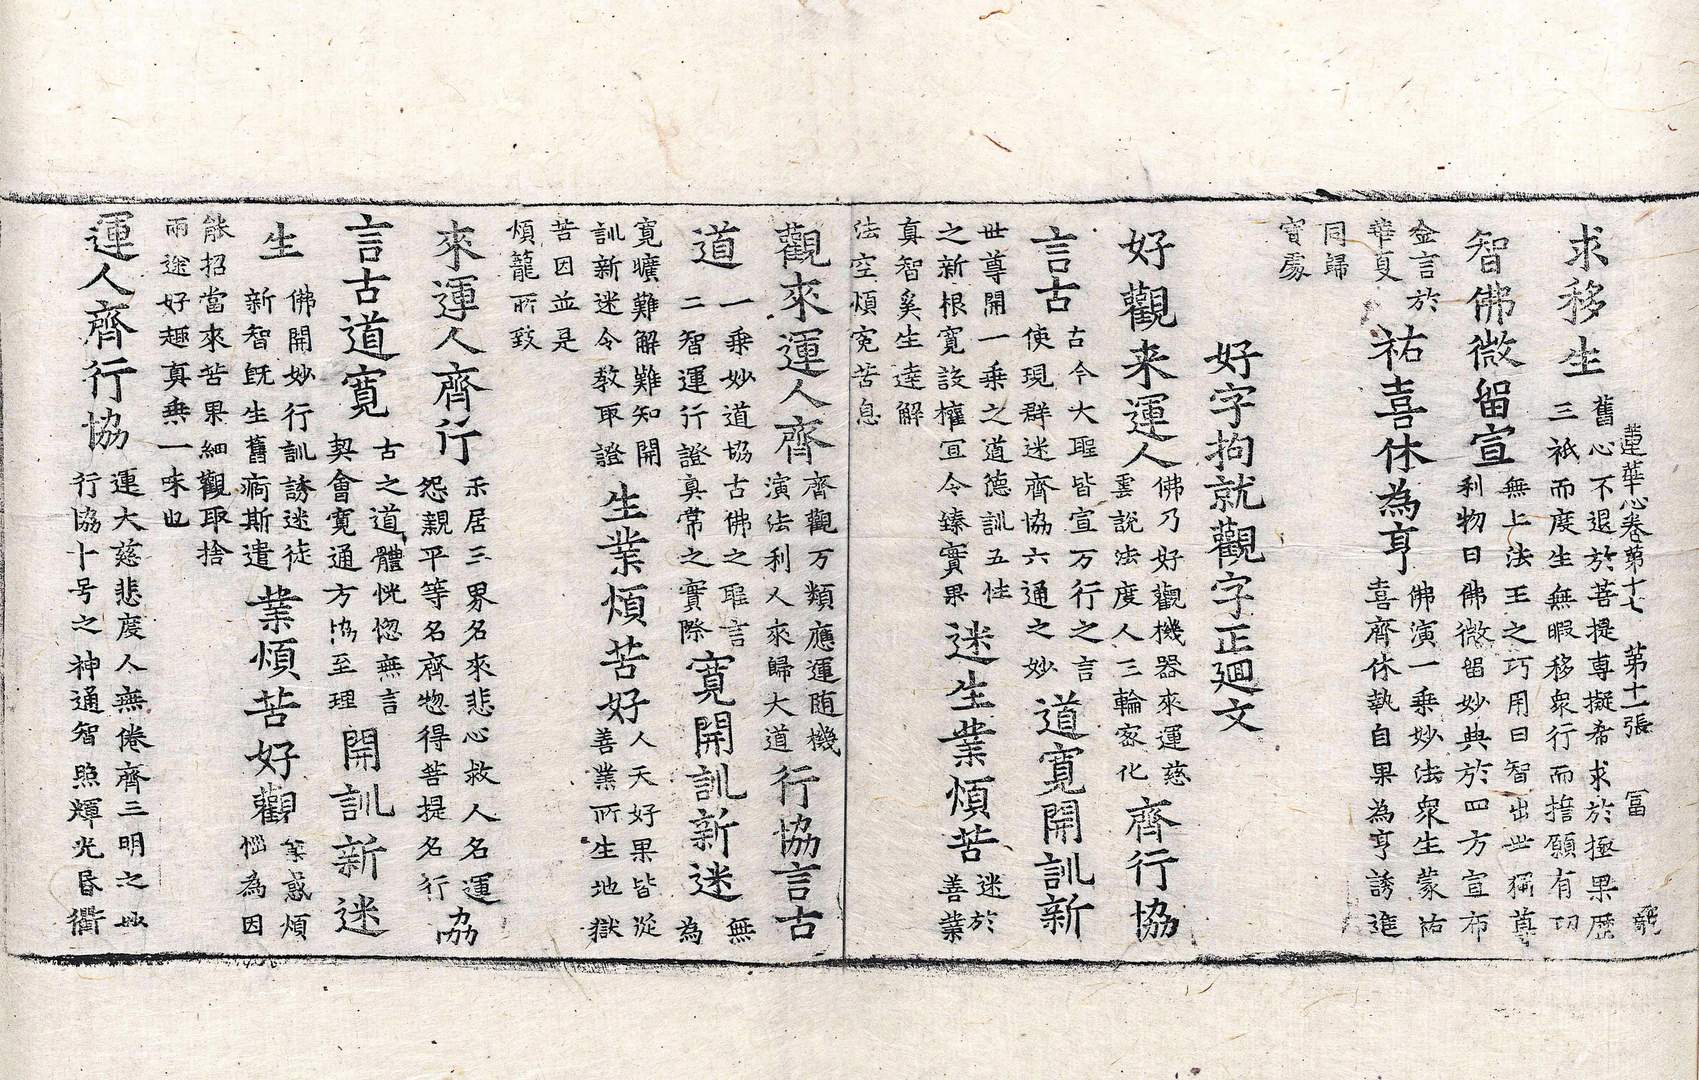 蓮華心卷第十七　第十一張　冨
求移生　舊心不退於菩提專擬希求於極果歷
三祇而度生無暇移眾行而捨願有切
智佛微留宣　無上法王之巧用曰智出世獨尊
利物曰佛微留妙典於四方宣布
金言於
華夏　祐喜休為亨　佛演一乗妙法眾生蒙祐
喜齊休執自果為亨誘進
同歸
寶處
好字拘就觀字正廻文
好觀来運人　佛乃好觀機器來運慈
雲說法度人三輪密化　齊行協
言古　古今大聖皆宣万行之言
使現群迷齊協六通之妙　道寬開訓新
世尊開一乗之道德訓五性
之新根寬設權冝令臻實果　迷生業煩苦　迷於
善業
真智奚生達解
法空煩寃苦息
觀來運人齊　齊觀万類應運随機
演法利人來歸大道　行協言古
道　一乗妙道協古佛之聖言
二智運行證真常之實際　寬開訓新迷　無
為
寛曠難解難知開
訓新迷令教取證　生業煩苦好　人天好果皆從
善業所生地獄
苦因並是
煩籠所致
來運人齊行　示居三界名來悲心救人名運
怨親平等名齊惣得菩提名行　協
言古道寬　古之道體恍惚無言
契會寛通方協至理　開訓新迷
生　佛開妙行訓誘迷徒
新智旣生舊痾斯遣　業煩苦好觀　業惑煩
惱為因
能招當來苦果細觀取捨
兩途好趣真乗一味也
運人齊行協　運大慈悲度人無倦齊三明之妙
行協十号之神通智照輝光昏衢